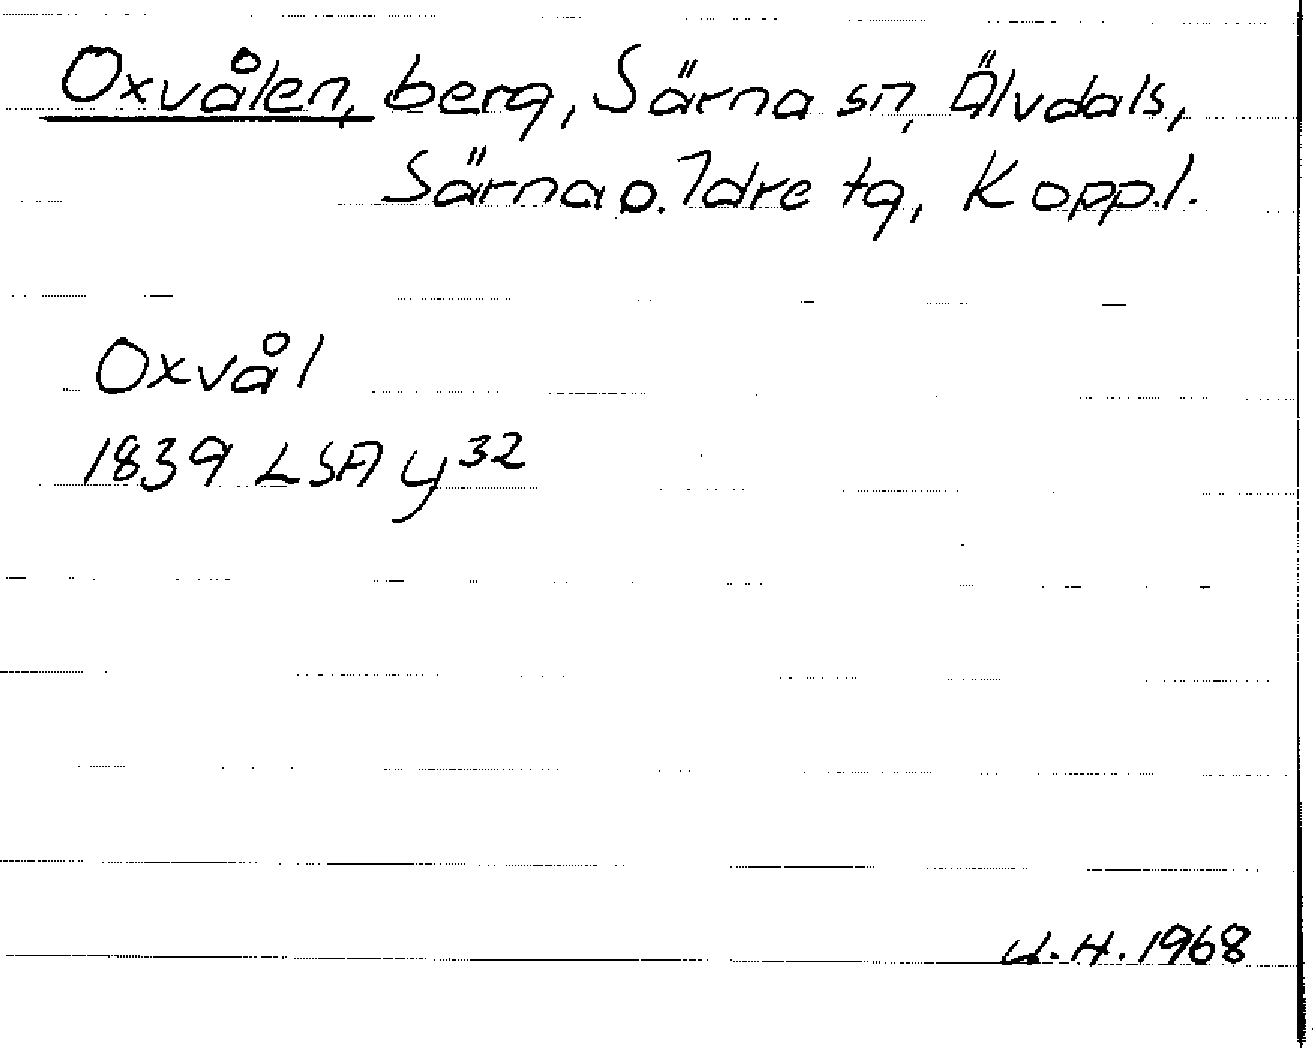 Oxvålen, berg, Särna sn, Älvdals,
Särna o. Idre tg, Kopp.l.
Oxvål
1839 LSA y 32
U.H. 1968